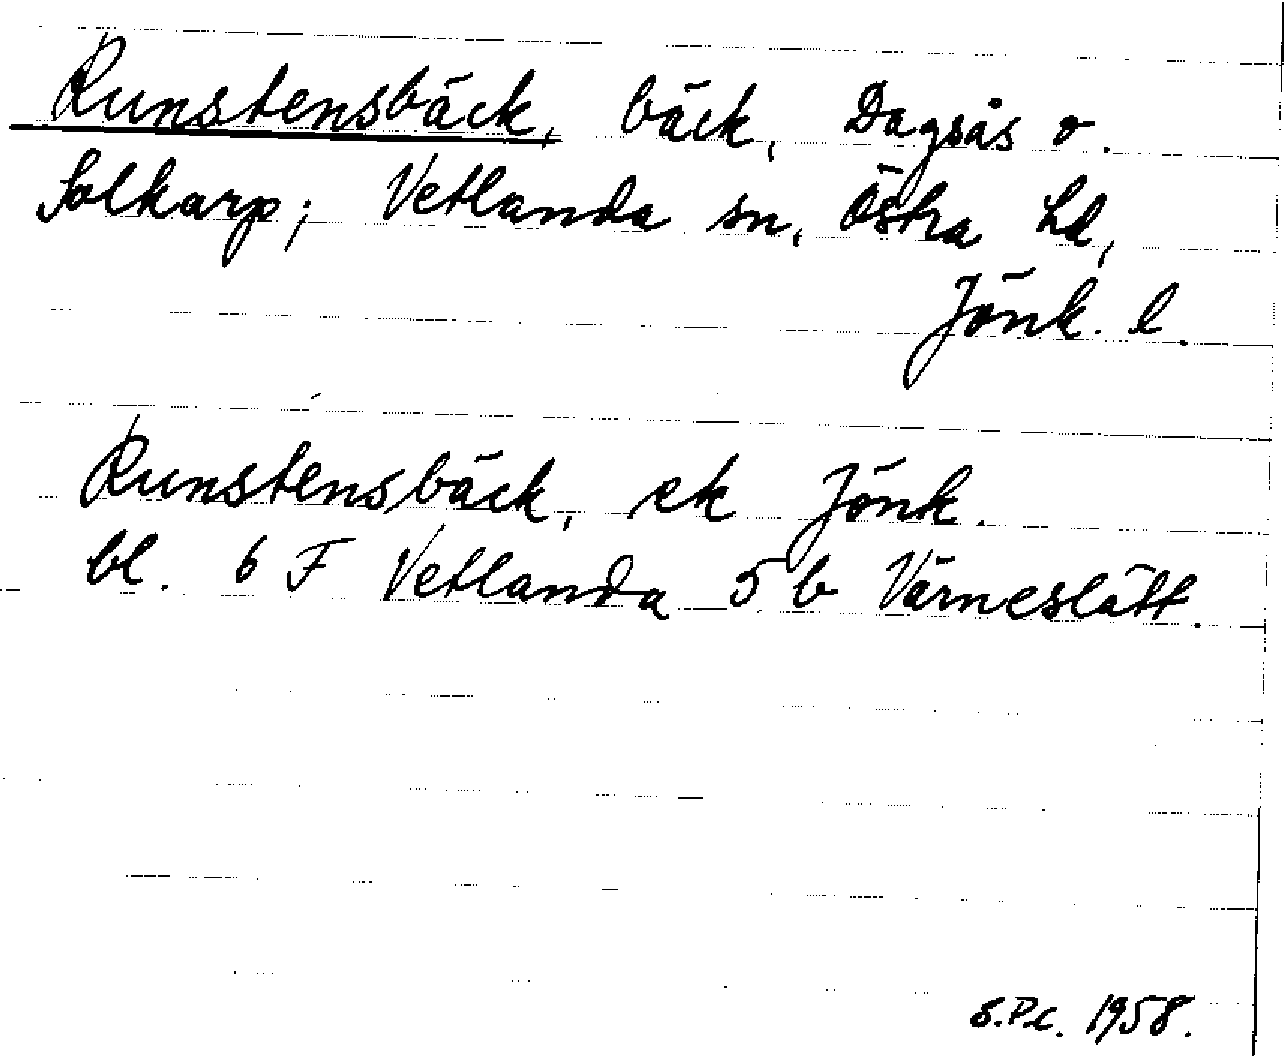 Runstensbäck, bäck, Dagsås o.
Solkarp; Vetlanda sn, Östra hd,
Jönk. l.
Runstensbäck, ek Jönk.
bl. 6 F Vetlanda 5 b Värneslätt.
1958.